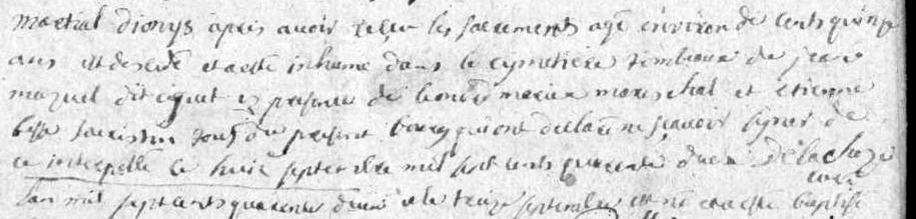 martial dionys après avoir reçu les sacrements agé environ de cents quinze
ans est decedé et a esté inhumé dans le cymetiere tombeaux de jean
mazuel dit en presence de leonard mareschal et etienne
sacristin tous du present bourg qui ont declaré ne sçavoir signer de
ce interpellé le huit septembre mil sept cents quarante deux delachoze
curé
l'an mil sept cents quarante deux et le treize septembre est né et a esté baptisé